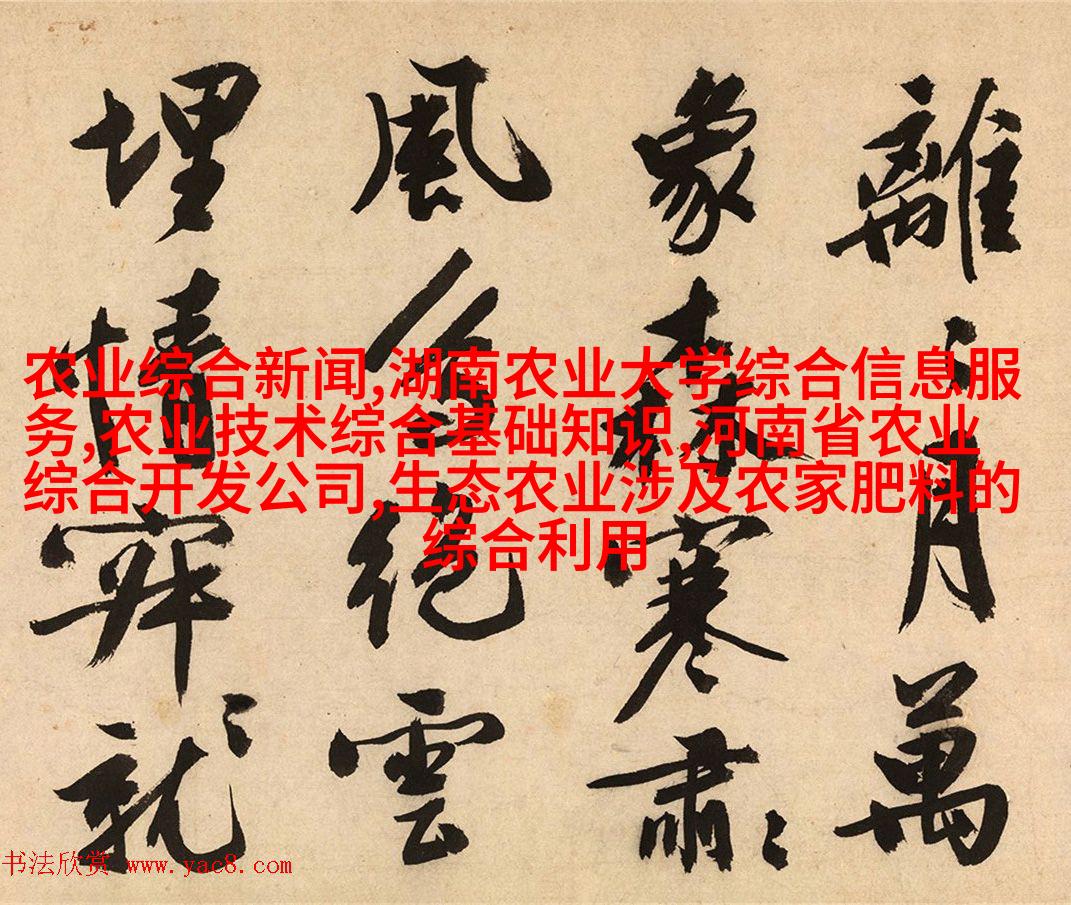 農业综合新闻,湖南农业大学综合信息服
务,农业技术综合基础知识,河南省农业
综合开发公司,生态农业涉及农家肥料的
综合利用
離〻月萬
象森寒肅〻
風絕雲
埋情就〻
书法欣赏 www.yac8.com